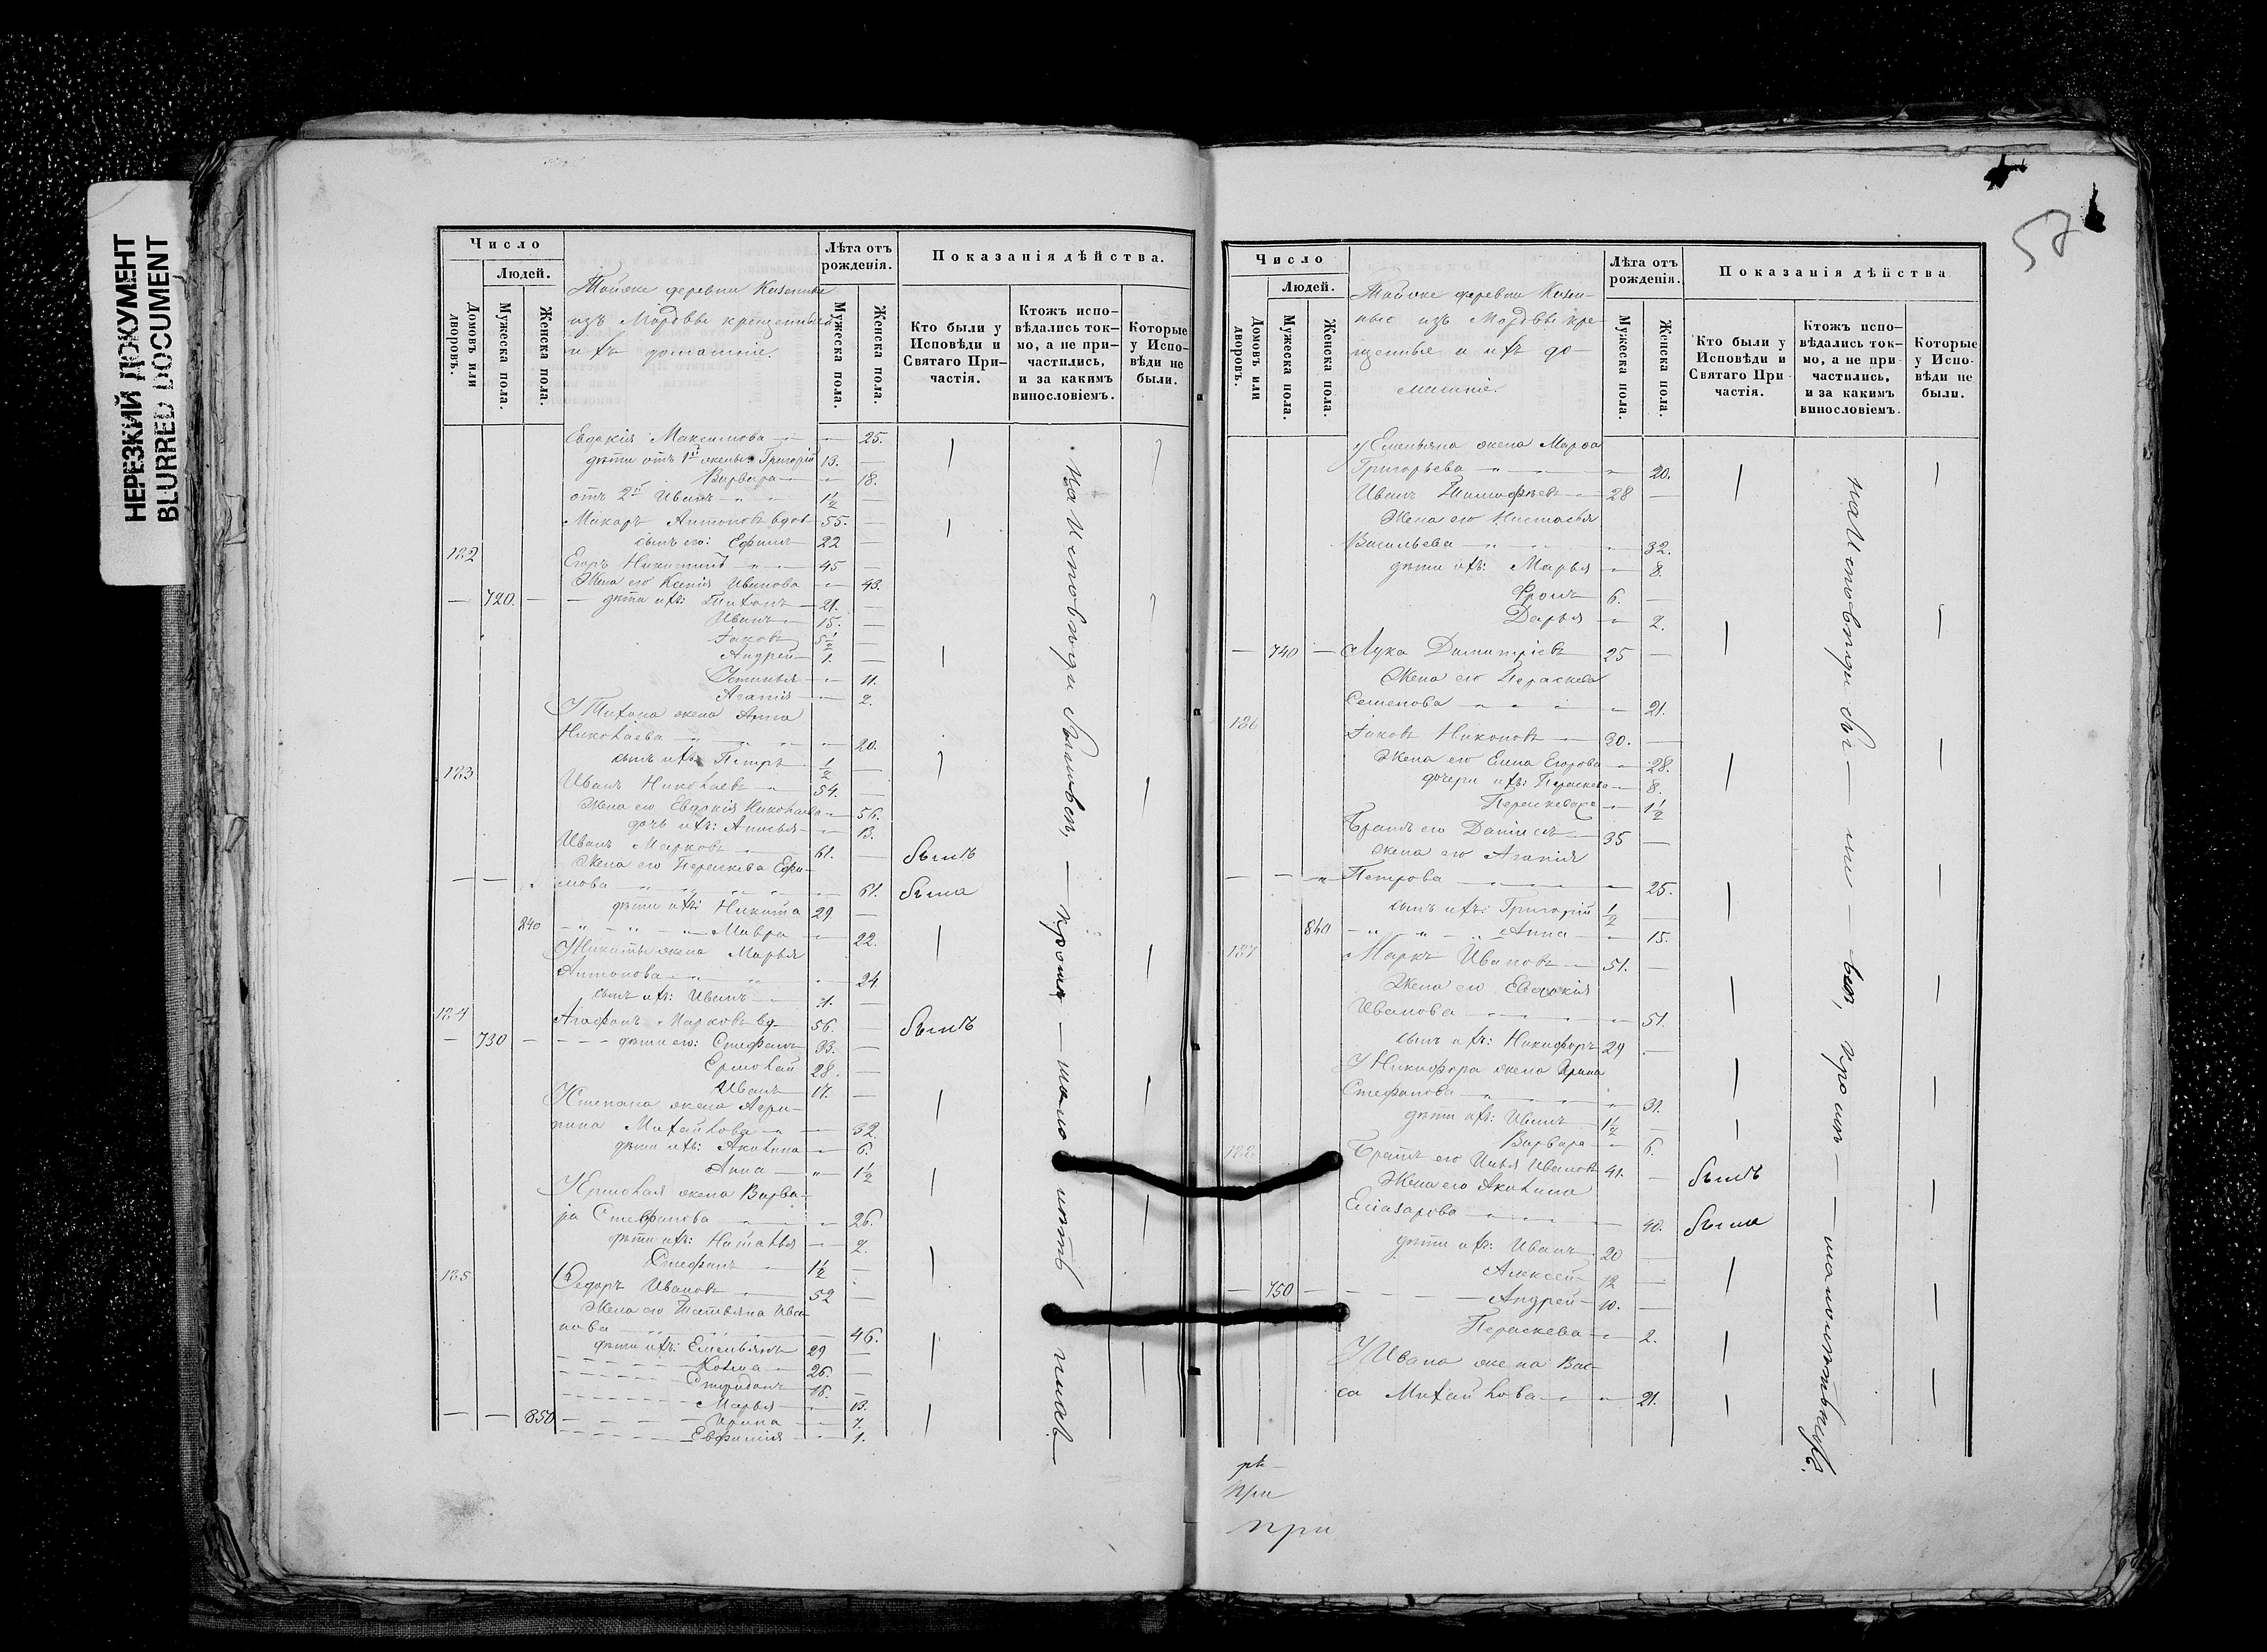 НЕРЕЗКИЙ ДОКУМЕНТ
BLURRED DOCUMENT
Число
Людей.
Домовъ или дворовъ.
Мужеска пола.
Женска пола.
Тойже деревни Казенные
изъ Мордвы крещенные
и ихъ домашніе.
Лѣта отъ рожденія.
Мужеска пола.
Женска пола.
Показанія дѣйства.
Кто были у Исповѣди и Святаго Причастія.
Ктожъ исповѣдались токмо, а не причастились, и за какимъ винословіемъ.
Которые у Исповѣди не были.
Евдокія Максимова 25.
дѣти отъ 1й жены: Григорій 13.
Варвара 18.
отъ 2й Иванъ 1½
Макаръ Антоновъ вдов 55.
сынъ его: Ефимъ 22
182 Егоръ Никитинъ 45
Жена его Ксенія Иванова 43.
720. дѣти ихъ: Тихонъ 21.
Иванъ 15.
Іаковъ 5½
Андрей 1.
Устинья 11.
Агапія 2.
У Тихона жена Анна
Николаева 20.
сынъ ихъ Петръ ½
183 Иванъ Николаевъ 54.
Жена его Евдокія Николаева 56.
дочь ихъ: Анисья 13.
Иванъ Марковъ 61. былъ
Жена его Параскева Ефи-
мова 61. была
дѣти ихъ: Никита 29
840 Мавра 22.
У Никиты жена Марья
Антонова 24
сынъ ихъ: Иванъ
184 Агафонъ Марковъ вд 56. былъ
730 дѣти его: Стефанъ 33.
Ермолай 28.
Иванъ 17.
У Степана жена Агри-
пина Михайлова 32.
дѣти ихъ: Акилина 6.
Анна 1½
У Ермолая жена Варва-
ра Стефанова 26.
дѣти ихъ: Наталья 2.
Стефанъ 1½
185 Федоръ Ивановъ 52
Жена его Татьяна Ива-
нова 46.
дѣти ихъ: Емельянъ 29
Козма 26.
Спиридонъ 15.
Марья 13.
850 Ирина 7.
Евфимія 1.
на Исповѣди
57
Число
Людей.
Домовъ или дворовъ.
Мужеска пола.
Женска пола.
Тойже деревни Казен-
ные изъ Мордвы кре-
щенные и ихъ до-
машніе.
Лѣта отъ рожденія.
Мужеска пола.
Женска пола.
Показанія дѣйства
Кто были у Исповѣди и Святаго При частія.
Ктожъ исповѣдались токмо, а не причастились, и за какимъ винословіемъ.
Которые у Исповѣди не были.
у Емельяна жена Марфа
Григорьева 20.
Иванъ Тимофѣевъ 28
Жена его Настасья
Васильева 32.
дѣти ихъ: Марья 8.
Фролъ 6.
Дарья 2.
740 Лука Димитріевъ 25
Жена его Параскева
Семенова 21.
186 Іаковъ Никоновъ 30.
Жена его Елена Егорова 28.
дочери ихъ: Параскева 8.
Параскева 2я 1½
Братъ его Даніилъ 35
жена его Агапія
Петрова 25.
сынъ ихъ: Григорій ½
860 Анна 15.
187 Маркъ Ивановъ 51.
Жена его Евдокія
Иванова 51.
сынъ ихъ: Никифоръ 29
У Никифора жена Ирина
Стефанова 31.
дѣти ихъ: Иванъ 1½
Варвара 6.
188 Братъ его Илья Ивановъ 41. былъ
Жена его Акилина
Елиазарова 40. была
дѣти ихъ: Иванъ 20
Алексей 12
750 Андрей 10.
Параскева 2.
У Ивана жена Вас-
са Михайлова 21.
на Исповѣди
при
при